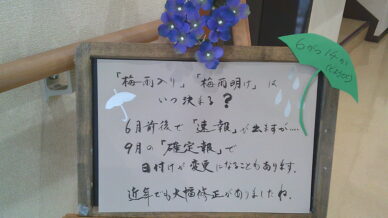 「梅雨入り」「梅雨明け」は
いつ決まる？
6月前後で「速報」が出ますが....
9月の「確定報」で
日付けが変更になることもあります。
近年でも大幅修正がありましたね。